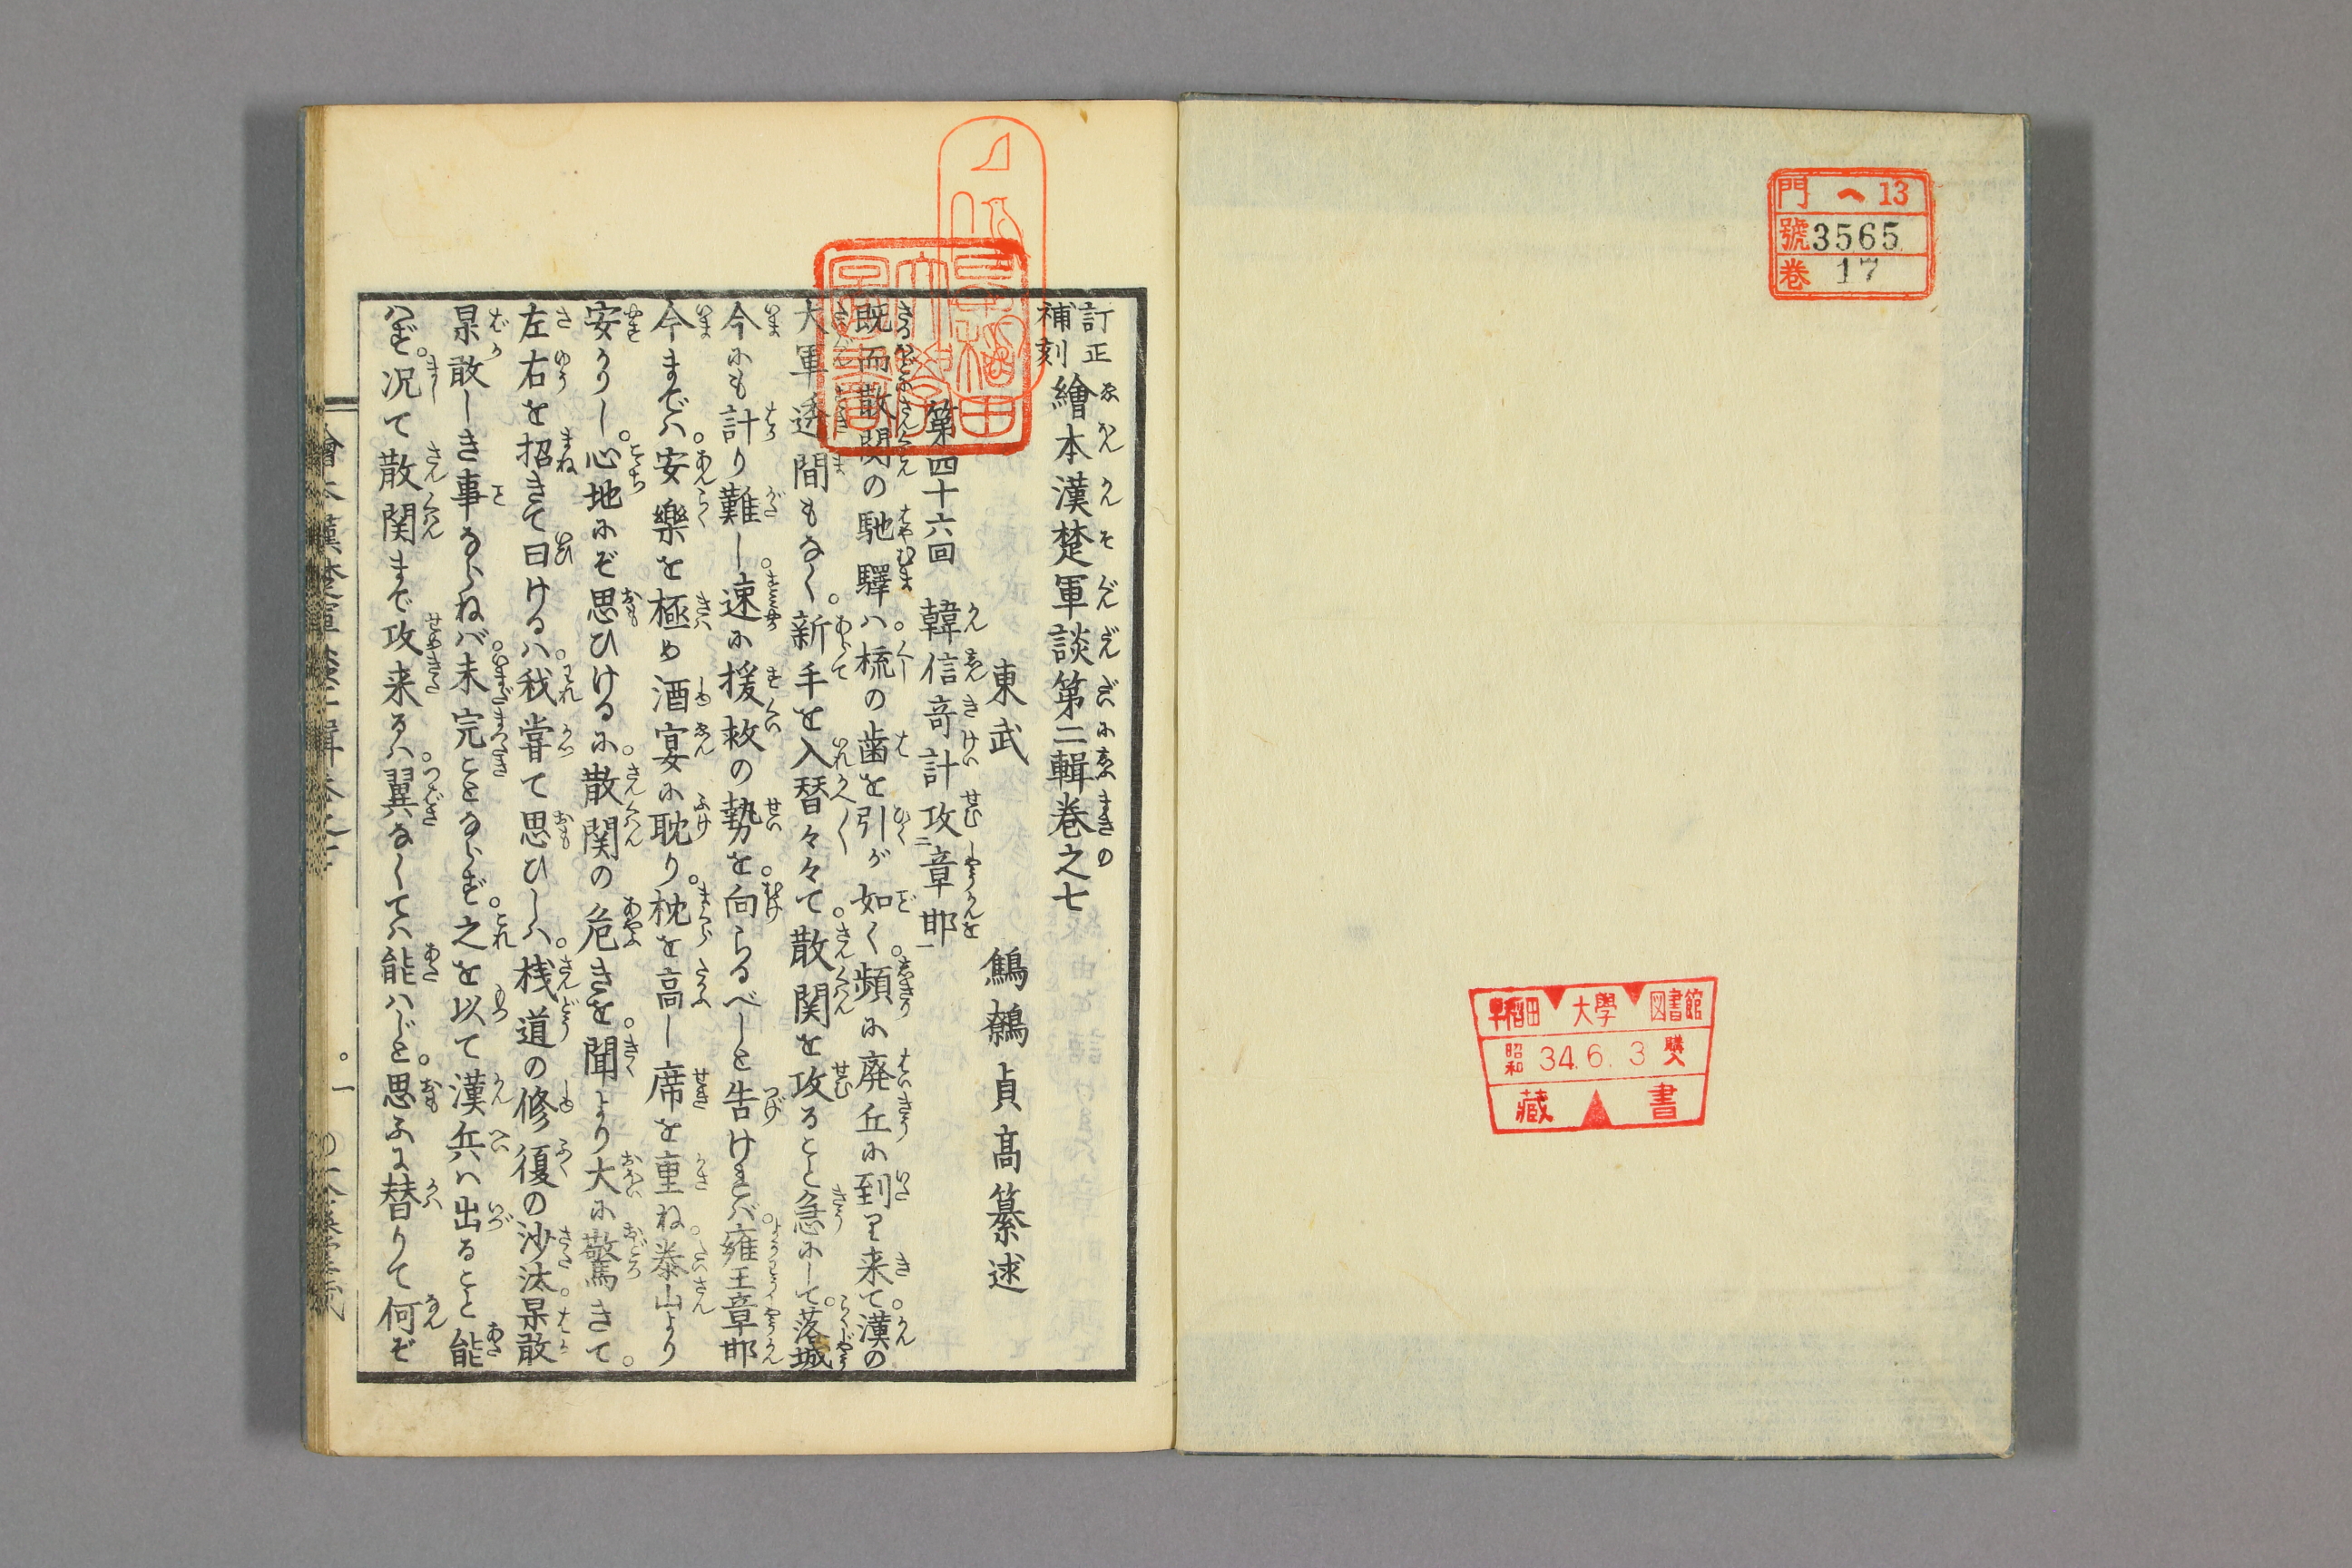 門 へ 13
號 3565
巻 17
早稲田 大學 図書館
昭和 34.6.3 購入
藏書
訂正
補刻
繪本漢楚軍談第二輯巻之七
東武 鷦鷯貞高纂述
第四十六回 韓信奇計攻章邯
既而散関の馳驛ハ梳の歯を引が如く。頻に廃丘に到り来て。漢の
大軍透間もなく。新手を入替々々て。散関を攻ること急にして。落城
今にも計り難し。速に援救の勢を。向らるべしと告けれバ。雍王章邯
今までハ。安樂を極め酒宴に耽り。枕を高し席を重ね。泰山より
安かりし。心地にぞ思ひける に。散関の危きを。聞より大に驚きて。
左右を招きて曰けるハ。我甞て思ひしハ。桟道の修復の沙汰。杲敢
杲敢しき事ならねバ。未完ことならず。之を以て漢兵ハ出ること能
ハず。况て散関まで攻来るハ。翼なくてハ能ハじと。思ふに替りて何ぞ
一